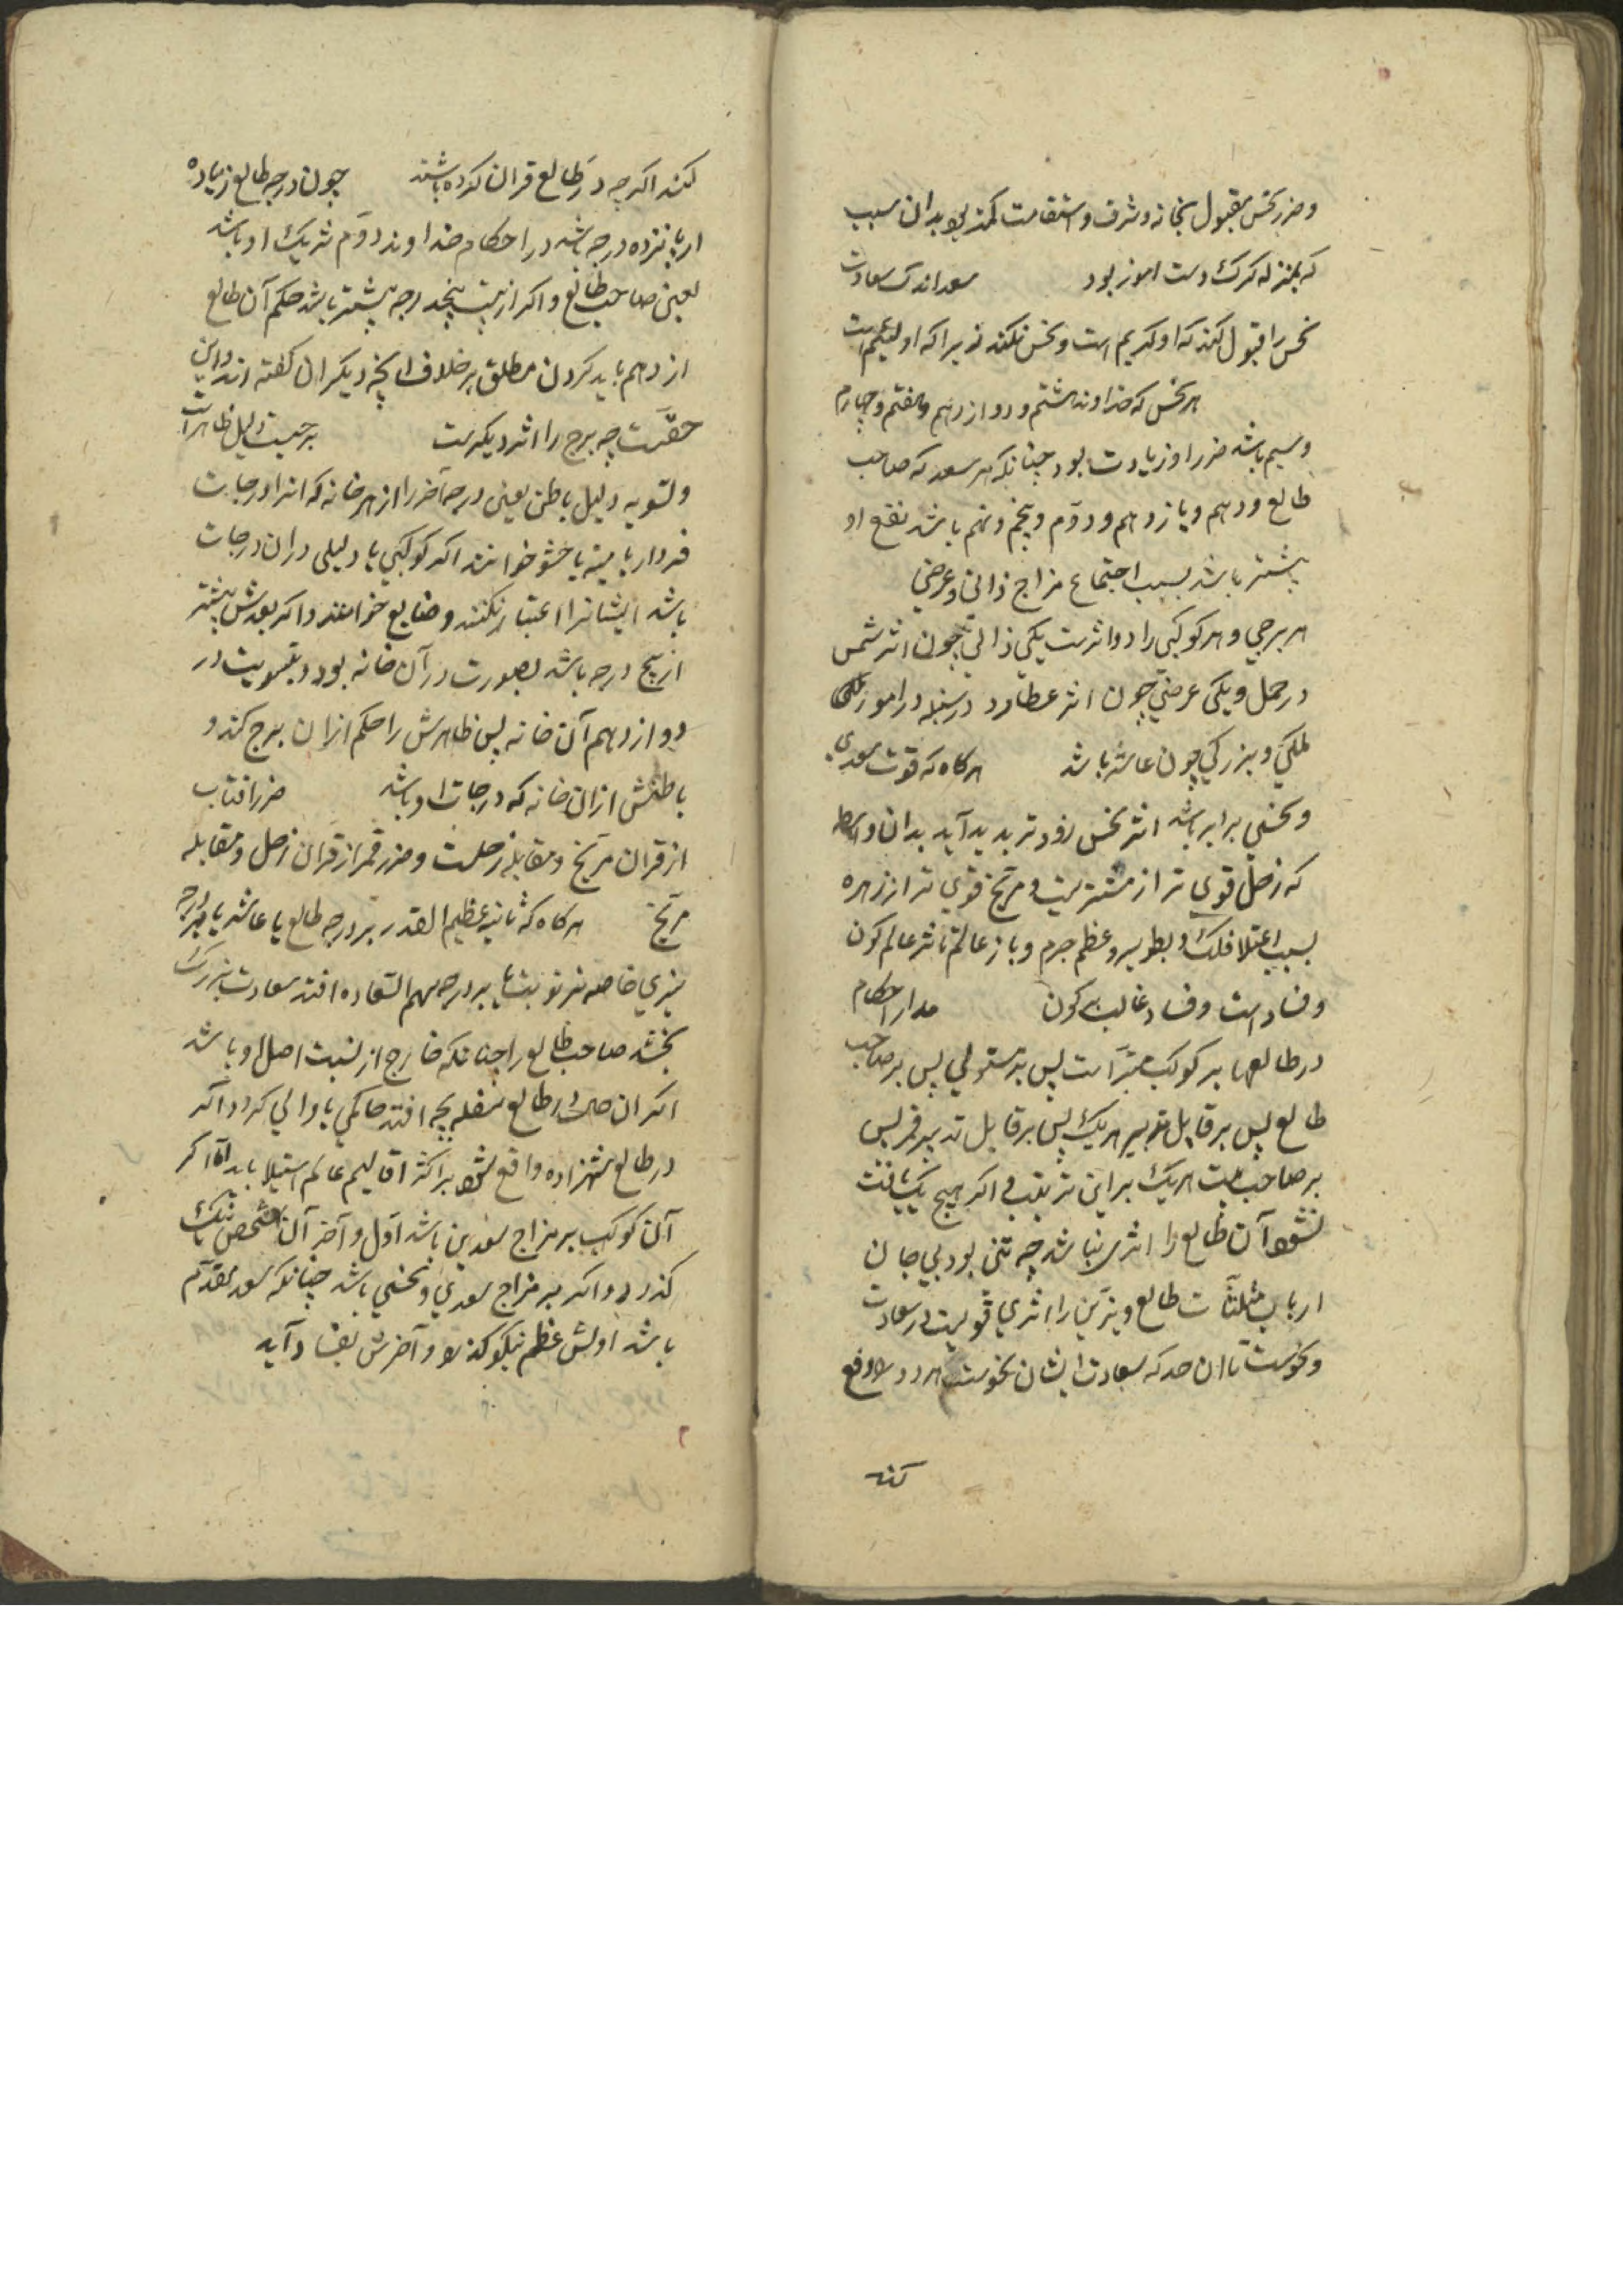 وضرر نحس مقبول بخانه و شرف و استقامت کمتر بود بدان سبب
که بمنزله کرک دست اموز بود سعد اندک سعادت
نحس را قبول کند که او کریم است و نحس نکند زیرا که او لئیم است
هر نحس که خداوند هشتم و دوازدهم و هفتم و چهارم
وسیم باشد ضرر او زیادت بود چنانکه هر سعد که صاحب
طالع و دهم و یازدهم و دوم و پنجم و نهم باشد نفع او
پیشتر باشد بسبب اجتماع مزاج ذاتی و عرضی
هر برجی و هر کوکبی را دو اثرست یکی ذاتی چون اثر شمس
در حمل و یکی عرضی چون اثر عطارد در سنبله در امور
ملکی و بزرکی چون عاشر باشد هرکاه که قوت سعدی
و نحسی برابر باشد اثر نحس زودتر بدید آید بدان واسطه
که زحل قوی تر از مشتریست و مریخ قوی تر از زهره
بسبب اعتلا فلک و بطو سیر و عظم جرم و باز عالم ما عالم کون
و فساد است و فساد غالب بر کون مدار احکام
در طالعها بر کوکب مبتزّ است پس بر مستولی پس بر صاحب
طالع پس بر قابل تدبیر هریک پس بر قابل تدبیر قمر پس
بر صاحب بیت هریک براین ترتیب و اکر هیچ یک یافت
نشود آن طالع را اثری نباشد چه تنی بود بی جان
ارباب مثلثات طالع و نیرین را اثری قویست در سعادت
و نحوست تا ان حد که سعادت ایشان نحوست هر دو را دفع
کند
کنند اکرچه در طالع قران کرده باشند چون درجه طالع زیاده
از پانزده درجه باشد در احکام خداوند دوم شریک او باشد
یعنی صاحب طالع و اکر از بیست پنجدرجه پیشتر باشد حکم آن طالع
از دهم باید کردن مطلق بر خلاف انچه دیکران کفته اند و این
حقست چه برج را اثر دیکرست برجیست دلیل ظاهرات
و تسویه دلیل باطن یعنی درجه آخر را از هر خانه که انرا درجات
خوانند اکر کوکبی یا دلیلی دران درجات
باشد ایشانرا اعتبار نکنند و ضایع خوانند و اکر بعدش پیشتر
از پنج درجه باشد بصورت در آن خانه بود و بتسویت در
دوازدهم آن خانه پس ظاهرش را حکم ازان برج کند و
باطنش ازان خانه که درجات او باشد ضرر افتاب
از قران مریخ و مقابله زحلست و ضرر قمر از قران زحل و مقابله
مریخ هرکاه که ثابته عظیم القدر بر درجه طالع یا عاشر یا بر درجه
نیری خاصه نیر نوبت یا بر درجه سهم السعاده افتد سعادت بزرک
بخشد صاحب طالع را چنانکه خارج از نسبت اصل او باشد
اکر ان حالت در طالع سفله بچه افتد حاکمی یا والی کردد و اکر
در طالع شهزاده واقع شود بر اکثر اقالیم عالم استیلا یابد اما اکر
آن کوکب بر مزاج سعدین باشد اول و آخر آن شخص نیک
کذرد و اکر بر مزاج سعدی و نحسی باشد چنانکه سعد مقدم
باشد اولش عظیم نیکو کذرد و آخرش بفساد آید